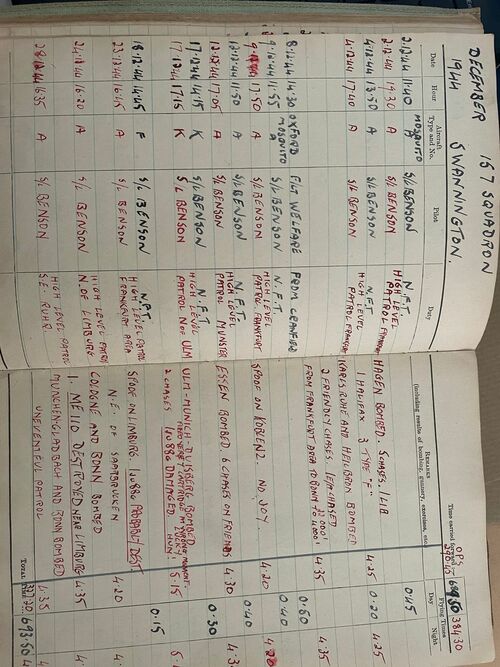 DECEMBER 157 SQUADRON
1944 SWANNINGTON
Date Hour Aircraft Type and No. Pilot Duty REMARKS (including results of bombing, gunnery, exercises, etc.) Flying Times Day Night
Time carried forward:— 384.30
OPS
2.12.44 11.40 MOSQUITO A S/L BENSON N.F.T 0.45
2.12.44 19.30 A S/L BENSON HIGH LEVEL PATROL HAGEN BOMBED. 5 CHASES. 4.25
4.12.44 13.50 A S/L BENSON N.F.T. 0.20
4.12.44 17.40 A S/L BENSON HIGH LEVEL PATROL FRANKFURT KARLSRUHE AND HEILBRON BOMBED 4.25
1 HALIFAX 3 TYPE "F"
2 FRIENDLY CHASES. 1 E/A CHASED
FROM FRANKFURT AREA TO BONN 4.35
8.12.44 14.30 OXFORD FLT WELFARE FROM CRANFIELD 0.50
9.12.44 11.55 MOSQUITO A S/L BENSON N.F.T 0.40
9.12.44 17.50 A S/L BENSON HIGH LEVEL PATROL FRANKFURT SPOOF ON KOBLENZ. NO JOY. 4.20
12.12.44 11.50 A S/L BENSON N.F.T 0.40
12.12.44 17.05 A S/L BENSON HIGH LEVEL PATROL MUNSTER ESSEN BOMBED. 6 CHASES ON FRIENDS 4.30
17.12.44 14.15 K S/L BENSON N.F.T 0.30
17.12.44 17.15 K S/L BENSON HIGH LEVEL PATROL N OF ULM ULM-MUNICH-DUISBERG BOMBED 5.15
2 CHASES 1 JU88G DAMAGED
18.12.44 14.45 F S/L BENSON N.F.T 0.15
23.12.44 16.45 A S/L BENSON HIGH LEVEL PATROL FRANKFURT AREA SPOOF ON LIMBURG 1 JU88G PROBABLY DEST. 4.20
N.E. OF SAARBRUCKEN
24.12.44 16.20 A S/L BENSON HIGH LEVEL PATROL N. OF LIMBURG COLOGNE AND BONN BOMBED 4.35
1. ME110 DESTROYED NEAR LIMBURG
28.12.44 16.35 A S/L BENSON HIGH LEVEL PATROL S.E. RUHR. MUNCHEN-GLADBACH AND BONN BOMBED 4.35
UNEVENTFUL PATROL
TOTAL TIME 693.50